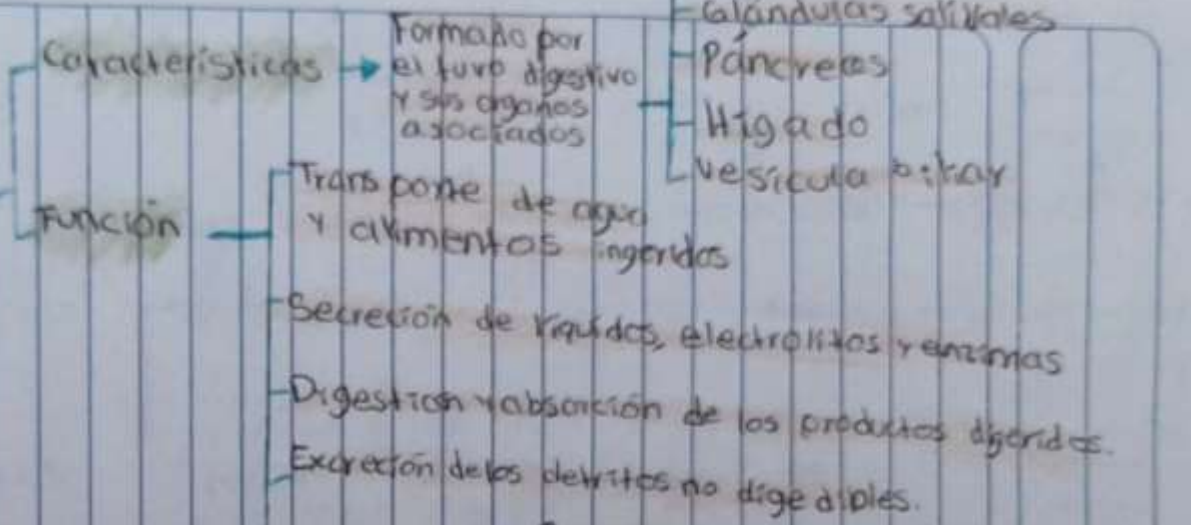 Características
Formado por
el tuvo digestivo
y sus órganos
asociados
Glándulas salivales
Páncreas
Hígado
Vesícula biliar
Función
Transporte de agua
y alimentos ingeridos
Secreción de líquidos, electrolitos y enzimas
Digestión y absorción de los productos digeridos.
Excreción de los detritos no digedibles.